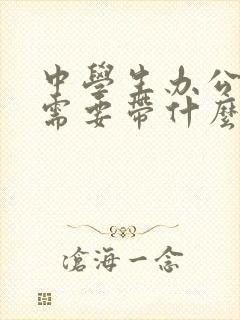 中學生办公
需要帶什麼
滄海一念